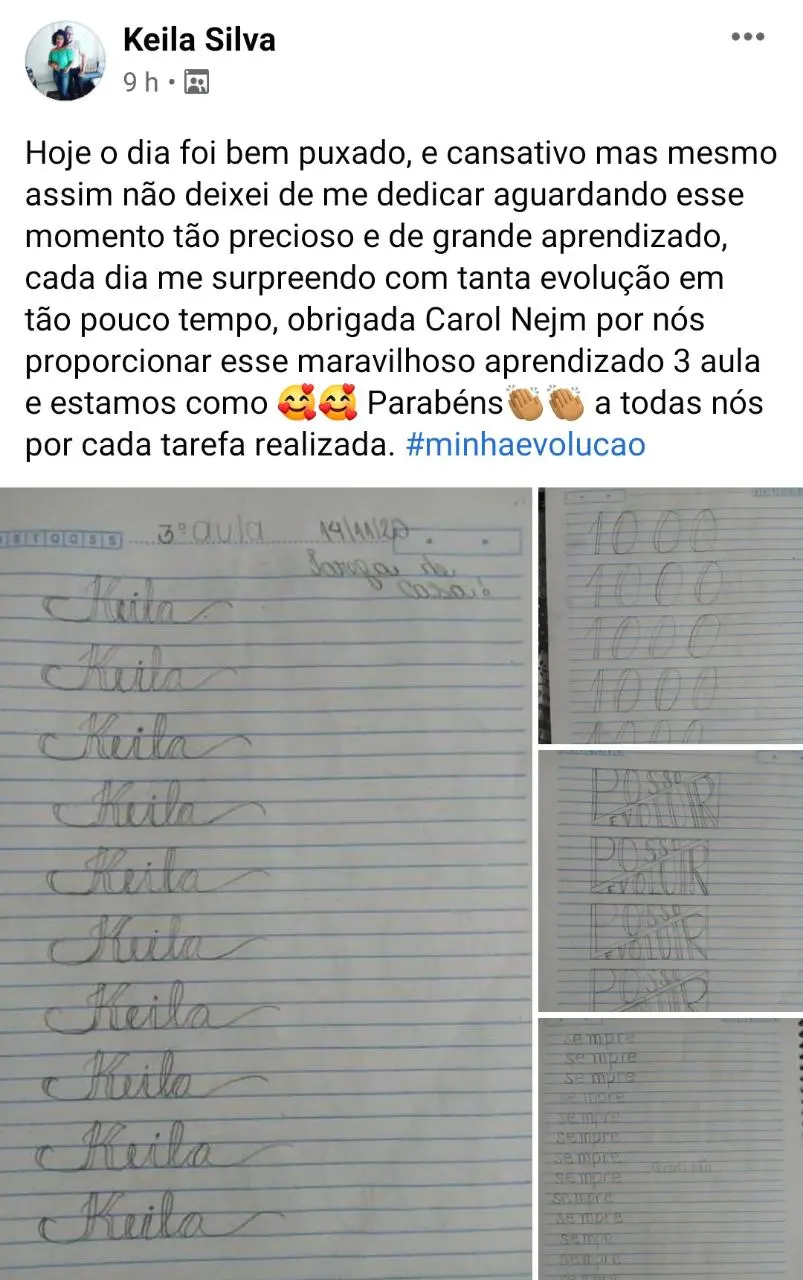 Keila Silva
9 h
Hoje o dia foi bem puxado, e cansativo mas mesmo
assim não deixei de me dedicar aguardando esse
momento tão precioso e de grande aprendizado,
cada dia me surpreendo com tanta evolução em
tão pouco tempo, obrigada Carol Nejm por nós
proporcionar esse maravilhoso aprendizado 3 aula
e estamos como 🥰🥰 Parabéns👏🏽👏🏽 a todas nós
por cada tarefa realizada. #minhaevolucao
3º aula 14/11/20
de
casa!
Keila
Keila
Keila
Keila
Keila
Keila
Keila
Keila
Keila
Keila
1000
1000
1000
1000
1000
POSSO
EVOLUIR
POSSO
EVOLUIR
POSSO
EVOLUIR
POSSO
EVOLUIR
sempre
sempre
sempre
sempre
sempre
sempre
sempre
sempre
sempre
sempre
sempe
sempre